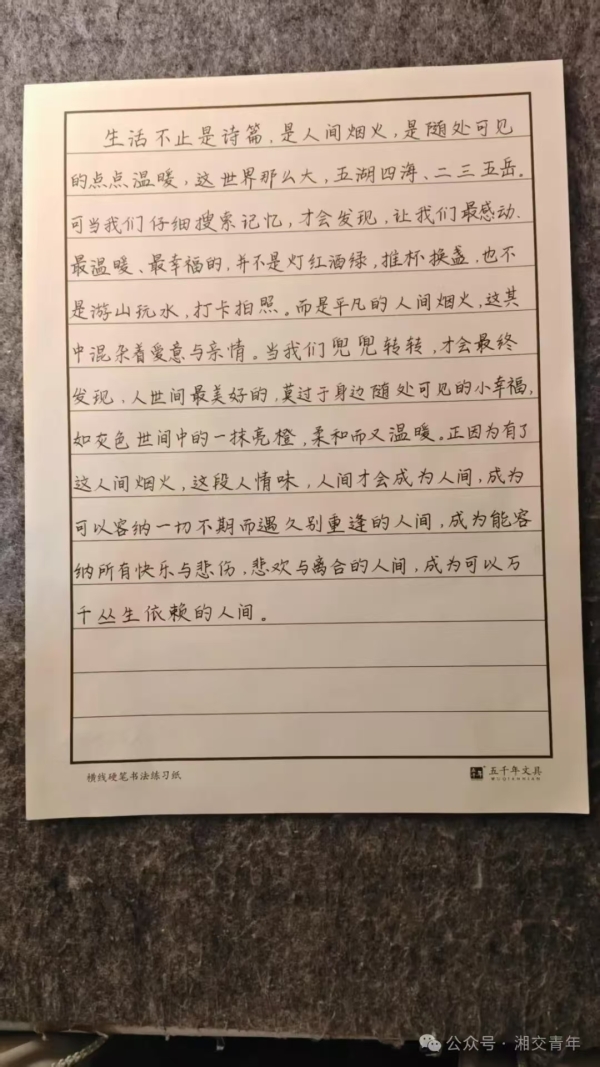 生活不止是诗篇，是人间烟火，是随处可见
的点点温暖，这世界那么大，五湖四海、二三五岳。
可当我们仔细搜索记忆，才会发现，让我们最感动.
最温暖、最幸福的，并不是灯红酒绿，推杯换盏，也不
是游山玩水，打卡拍照。而是平凡的人间烟火，这其
中混杂着爱意与亲情。当我们兜兜转转，才会最终
发现，人世间最美好的，莫过于身边随处可见的小幸福，
如灰色世间中的一抹亮橙，柔和而又温暖。正因为有了
这人间烟火，这段人情味，人间才会成为人间，成为
可以容纳一切不期而遇久别重逢的人间，成为能容
纳所有快乐与悲伤，悲欢与离合的人间，成为可以万
千丛生依赖的人间。
横线硬笔书法练习纸
五千年文具
WUQIANNIAN
公众号·湘交青年